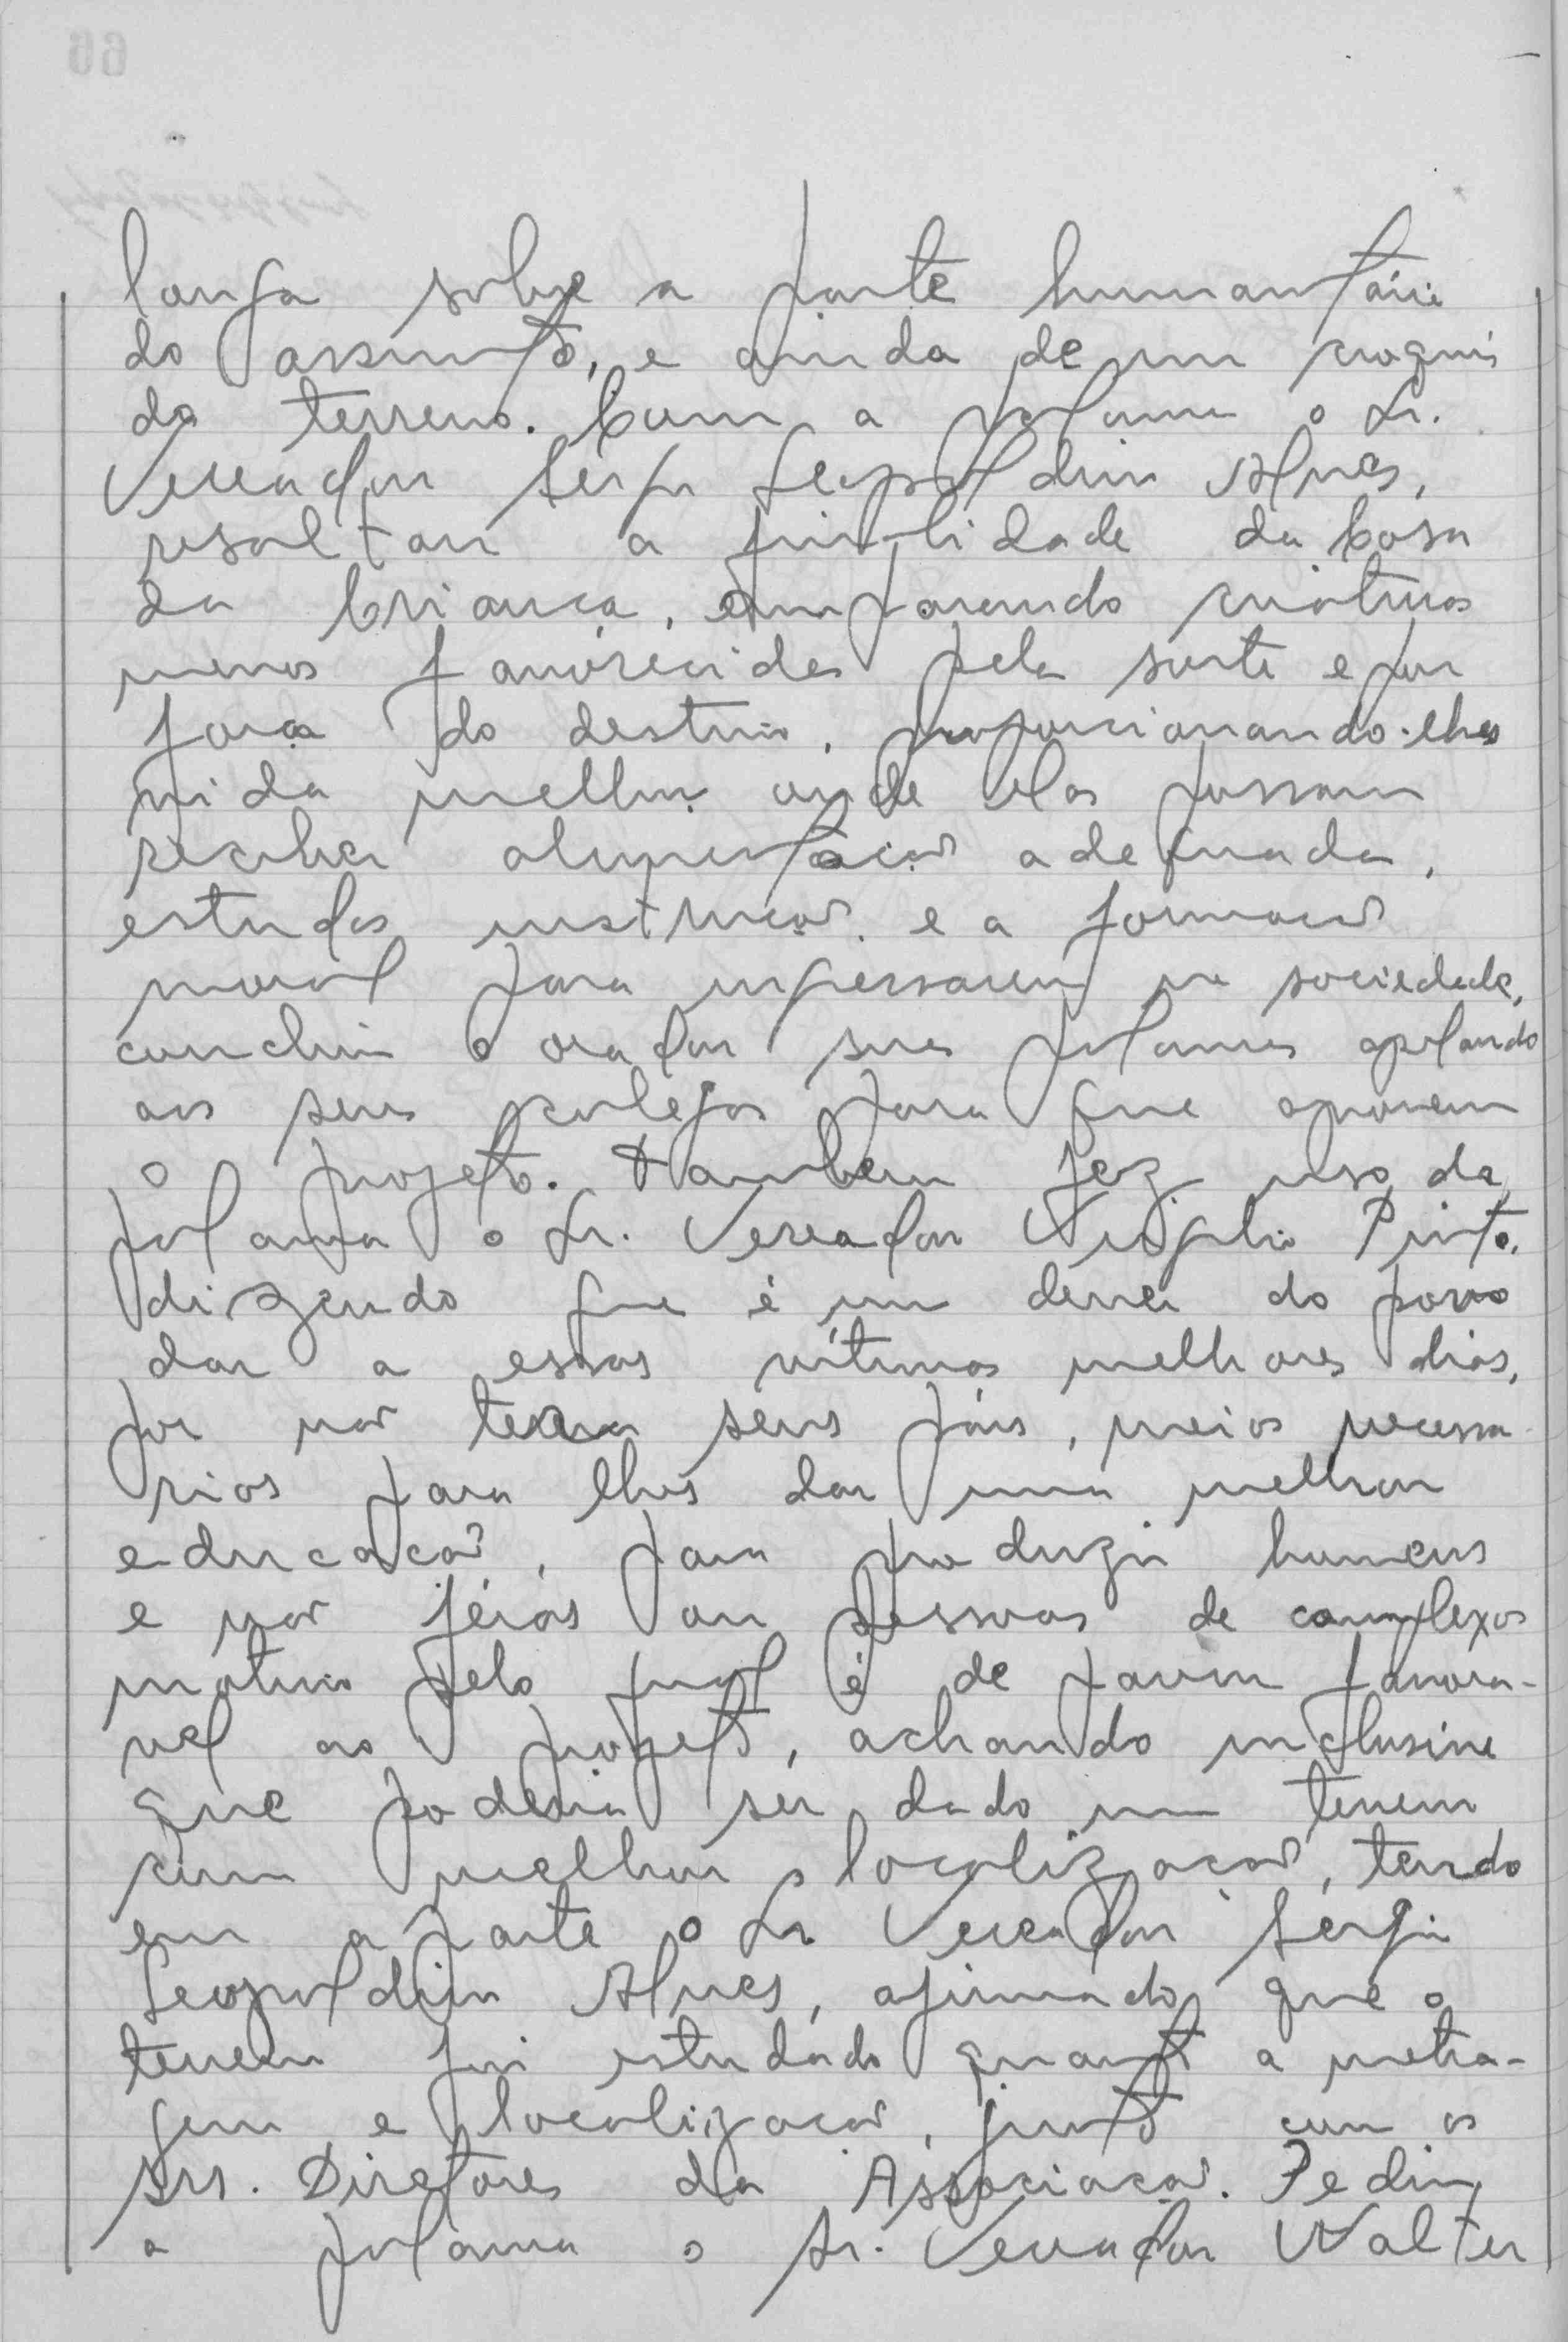 longa sobre a parte humanitária
do assunto, e ainda de um croquis
do terreno. Com a palavra o Sr.
Vereador Sergio Leopoldino Alves,
resaltou a finalidade da Casa
da Criança, amparando criaturas
menos favorecidas pela sorte e por
força do destino, proporcionando-lhes
vida melhor onde elas possam
receber alimentação adequada,
estudos instrução e a formação
moral para ingressarem na sociedade,
concluiu o orador suas palavras apelando
aos seus colegas para que aprovem
o projeto. Tambem fez uso da
palavra o Sr. Vereador Virgilio Pinto,
dizendo que é um dever do povo
dar a essas vítimas melhores dias,
por não terem seus páis, meios necessa-
rios para lhes dar uma melhor
educação, para produzir homens
e não féras ou pessoas de complexos
motivo pelo qual é de parecer favora-
vel ao projeto, achando inclusive
que poderia ser dado um terreno
com melhor localização, tendo
em aparte o Sr. Vereador Sergio
Leopoldino Alves, afirmado que o
terreno foi estudado quanto a metra-
gem e localização, junto com os
srs. Diretores da Associação. Pediu
a palavra o Sr. Vereador Walter